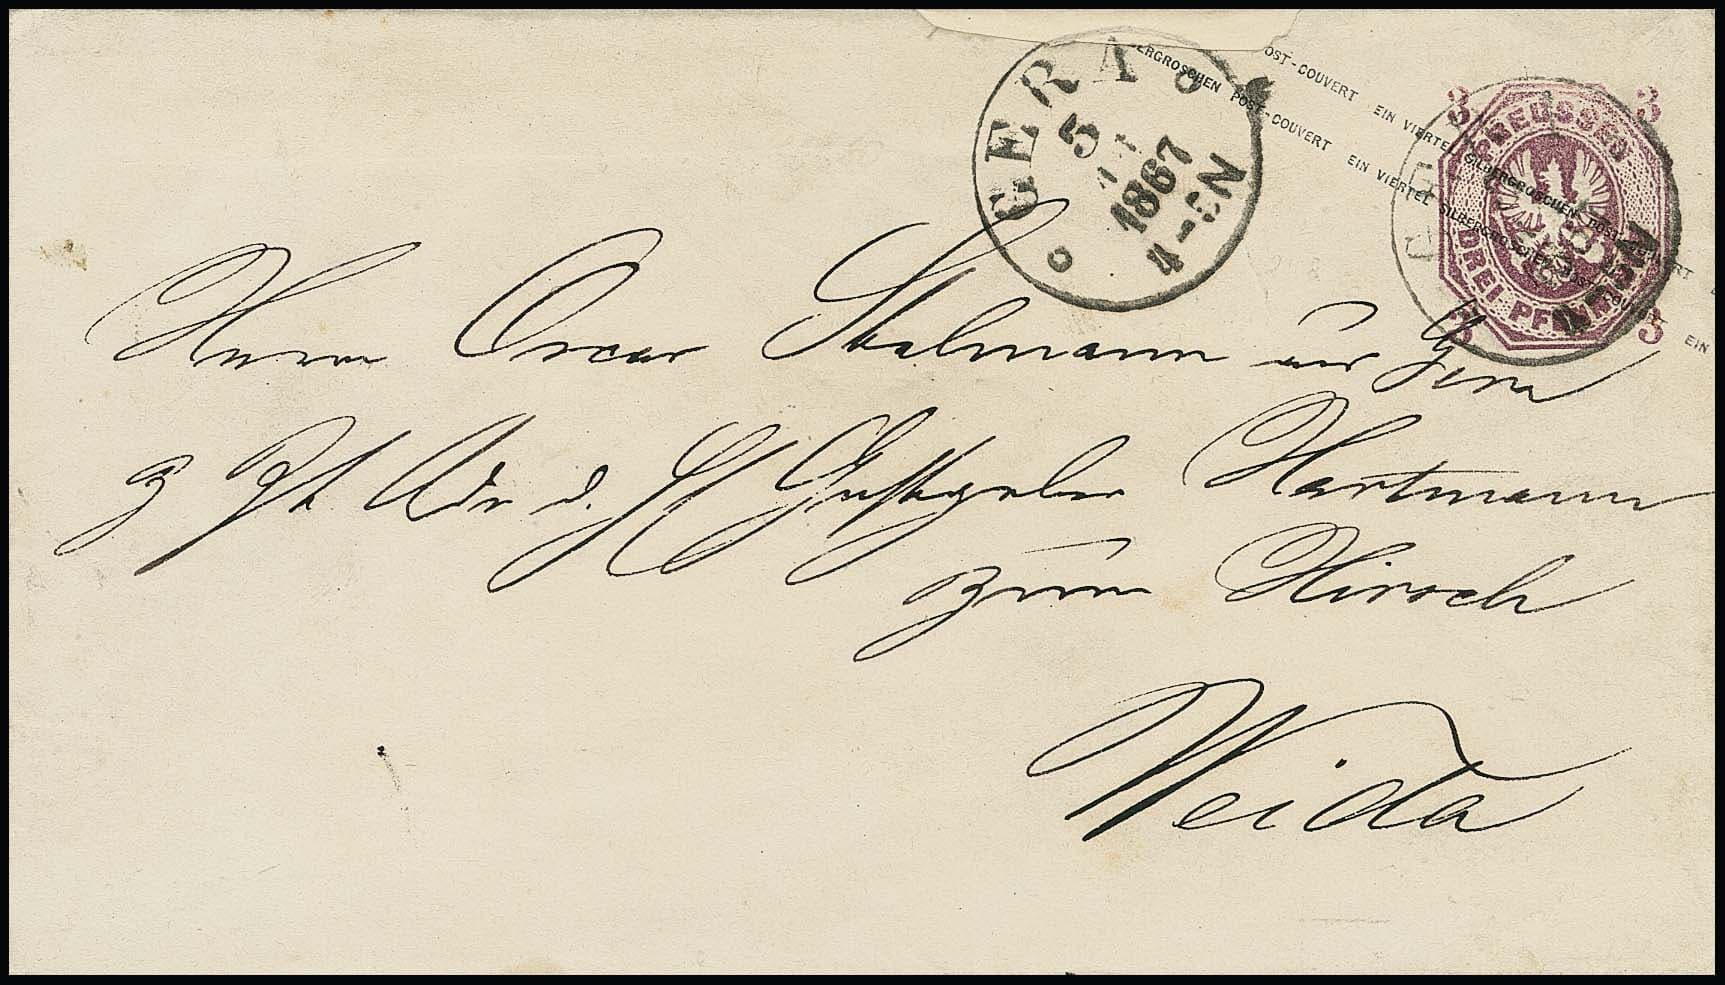 SILBERGROSCHEN POST-COUVERT EIN VIERTEL SILBERGROSCHEN POST-COUVERT EIN
POST-COUVERT EIN VIERTEL SILBERGROSCHEN POST-COUVERT
GERA
5
1867
4-6N
3 3
PREUSSEN
DREI PFENNIGE
3 3
Herrn Oscar Stalmann aus Gera
z Zt Adr d. H Gastgeber Hartmann
zum Hirsch
Weida